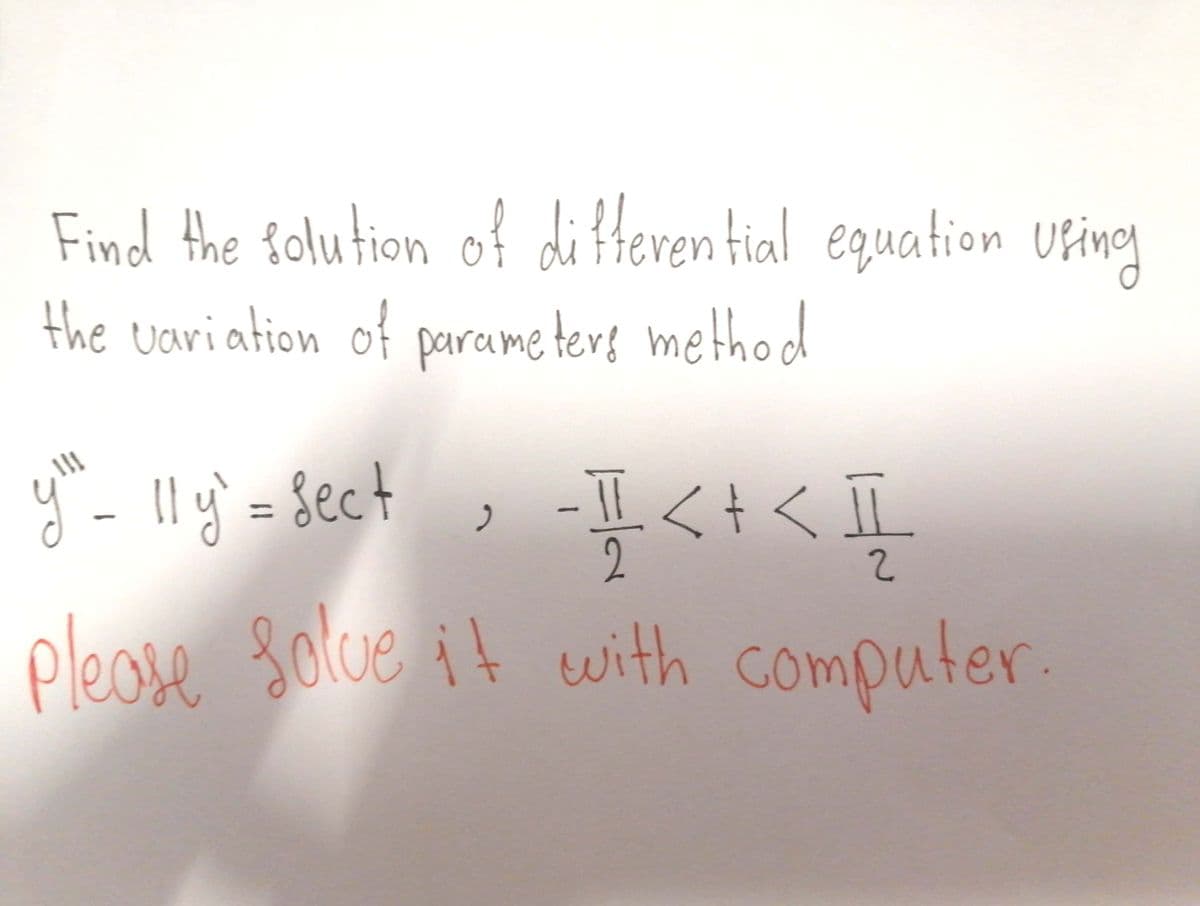 Find the solution of differential equation using
the variation of parameters method
y''' - 11y' = sect , -π/2 < t < π/2
please solve it with computer.